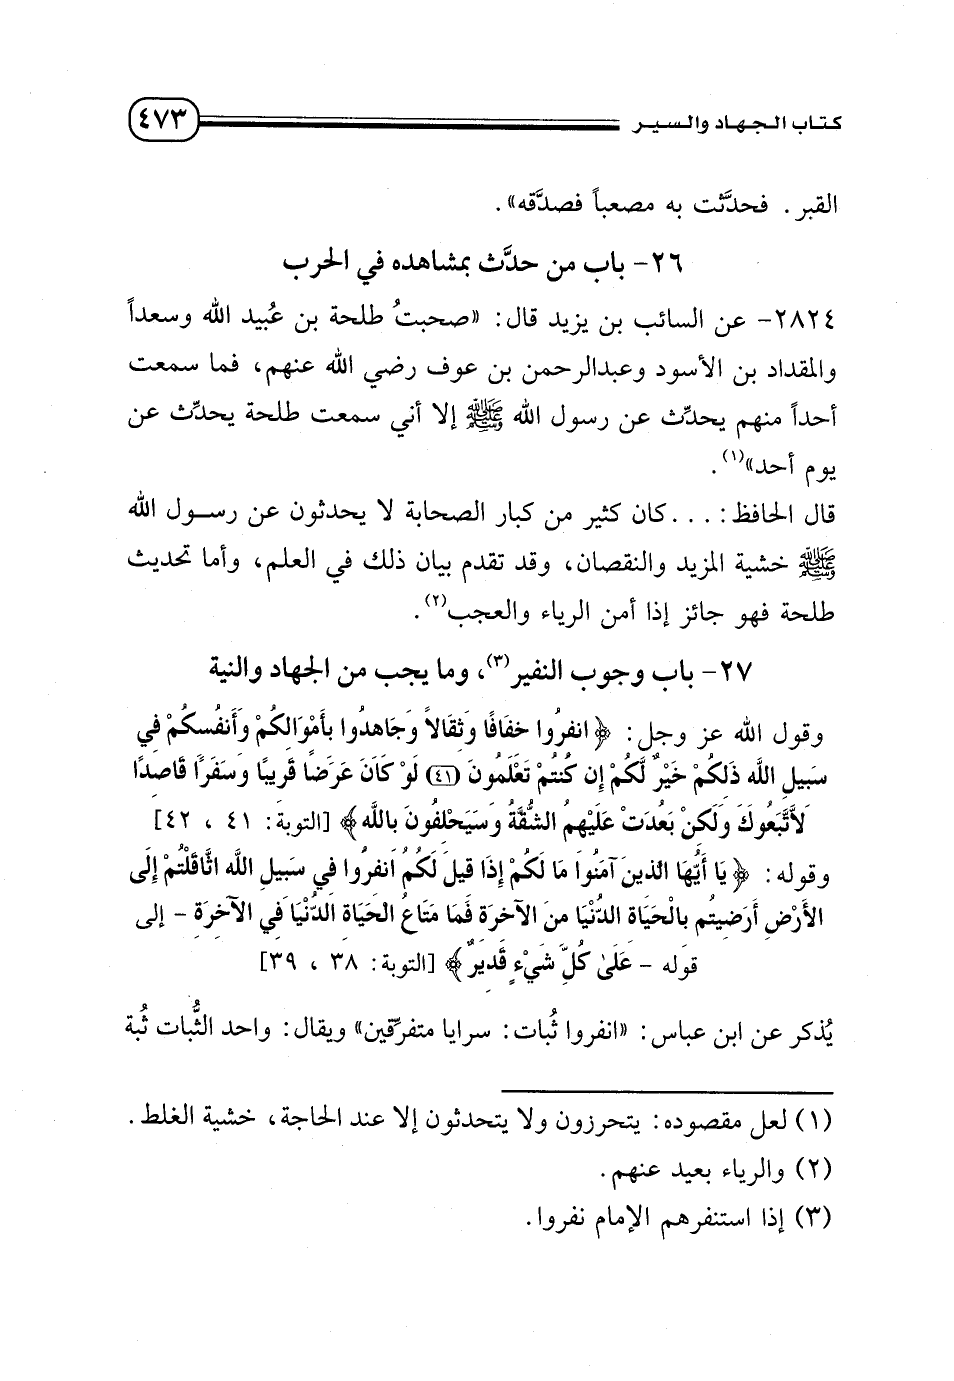 كتاب الجهاد والسير ٤٧٣
القبر. فحدَّثت به مصعباً فصدَّقه».
٢٦- باب من حدَّث بمشاهده في الحرب
٢٨٢٤- عن السائب بن يزيد قال: «صحبتُ طلحة بن عُبيد الله وسعداً
والمقداد بن الأسود وعبدالرحمن بن عوف رضي الله عنهم، فما سمعت
أحداً منهم يحدِّث عن رسول الله ﷺ إلا أني سمعت طلحة يحدِّث عن
يوم أحد»(١).
قال الحافظ: ...كان كثير من كبار الصحابة لا يحدثون عن رسول الله
ﷺ خشية المزيد والنقصان، وقد تقدم بيان ذلك في العلم، وأما تحديث
طلحة فهو جائز إذا أمن الرياء والعجب(٢).
٢٧- باب وجوب النفير(٣)، وما يجب من الجهاد والنية
وقول الله عز وجل: ﴿انفِرُوا خِفَافًا وَثِقَالاً وَجَاهِدُوا بِأَمْوَالِكُمْ وَأَنفُسِكُمْ فِي
سَبِيلِ اللَّه ذَلِكُمْ خَيْرٌ لَّكُمْ إِن كُنتُمْ تَعْلَمُونَ (٤١) لَوْ كَانَ عَرَضًا قَرِيبًا وَسَفَرًا قَاصِدًا
لاَّتَّبَعُوكَ وَلَكِنْ بَعُدَتْ عَلَيْهِمُ الشُّقَّةُ وَسَيَحْلِفُونَ بِاللَّه﴾ [التوبة: ٤١ ، ٤٢]
وقوله: ﴿يَا أَيُّهَا الَّذِينَ آمَنُوا مَا لَكُمْ إِذَا قِيلَ لَكُمُ انفِرُوا فِي سَبِيلِ اللَّه اثَّاقَلْتُمْ إِلَى
الأَرْضِ أَرَضِيتُم بِالْحَيَاةِ الدُّنْيَا مِنَ الآخِرَةِ فَمَا مَتَاعُ الْحَيَاةِ الدُّنْيَا فِي الآخِرَةِ - إلى
قوله - عَلَىٰ كُلِّ شَيْءٍ قَدِيرٌ﴾ [التوبة: ٣٨ ، ٣٩]
يُذكر عن ابن عباس: «انفروا ثُبات: سرايا متفرِّقين» ويقال: واحد الثُّبات ثُبة
(١) لعل مقصوده: يتحرزون ولا يتحدثون إلا عند الحاجة، خشية الغلط.
(٢) والرياء بعيد عنهم.
(٣) إذا استنفرهم الإمام نفروا.